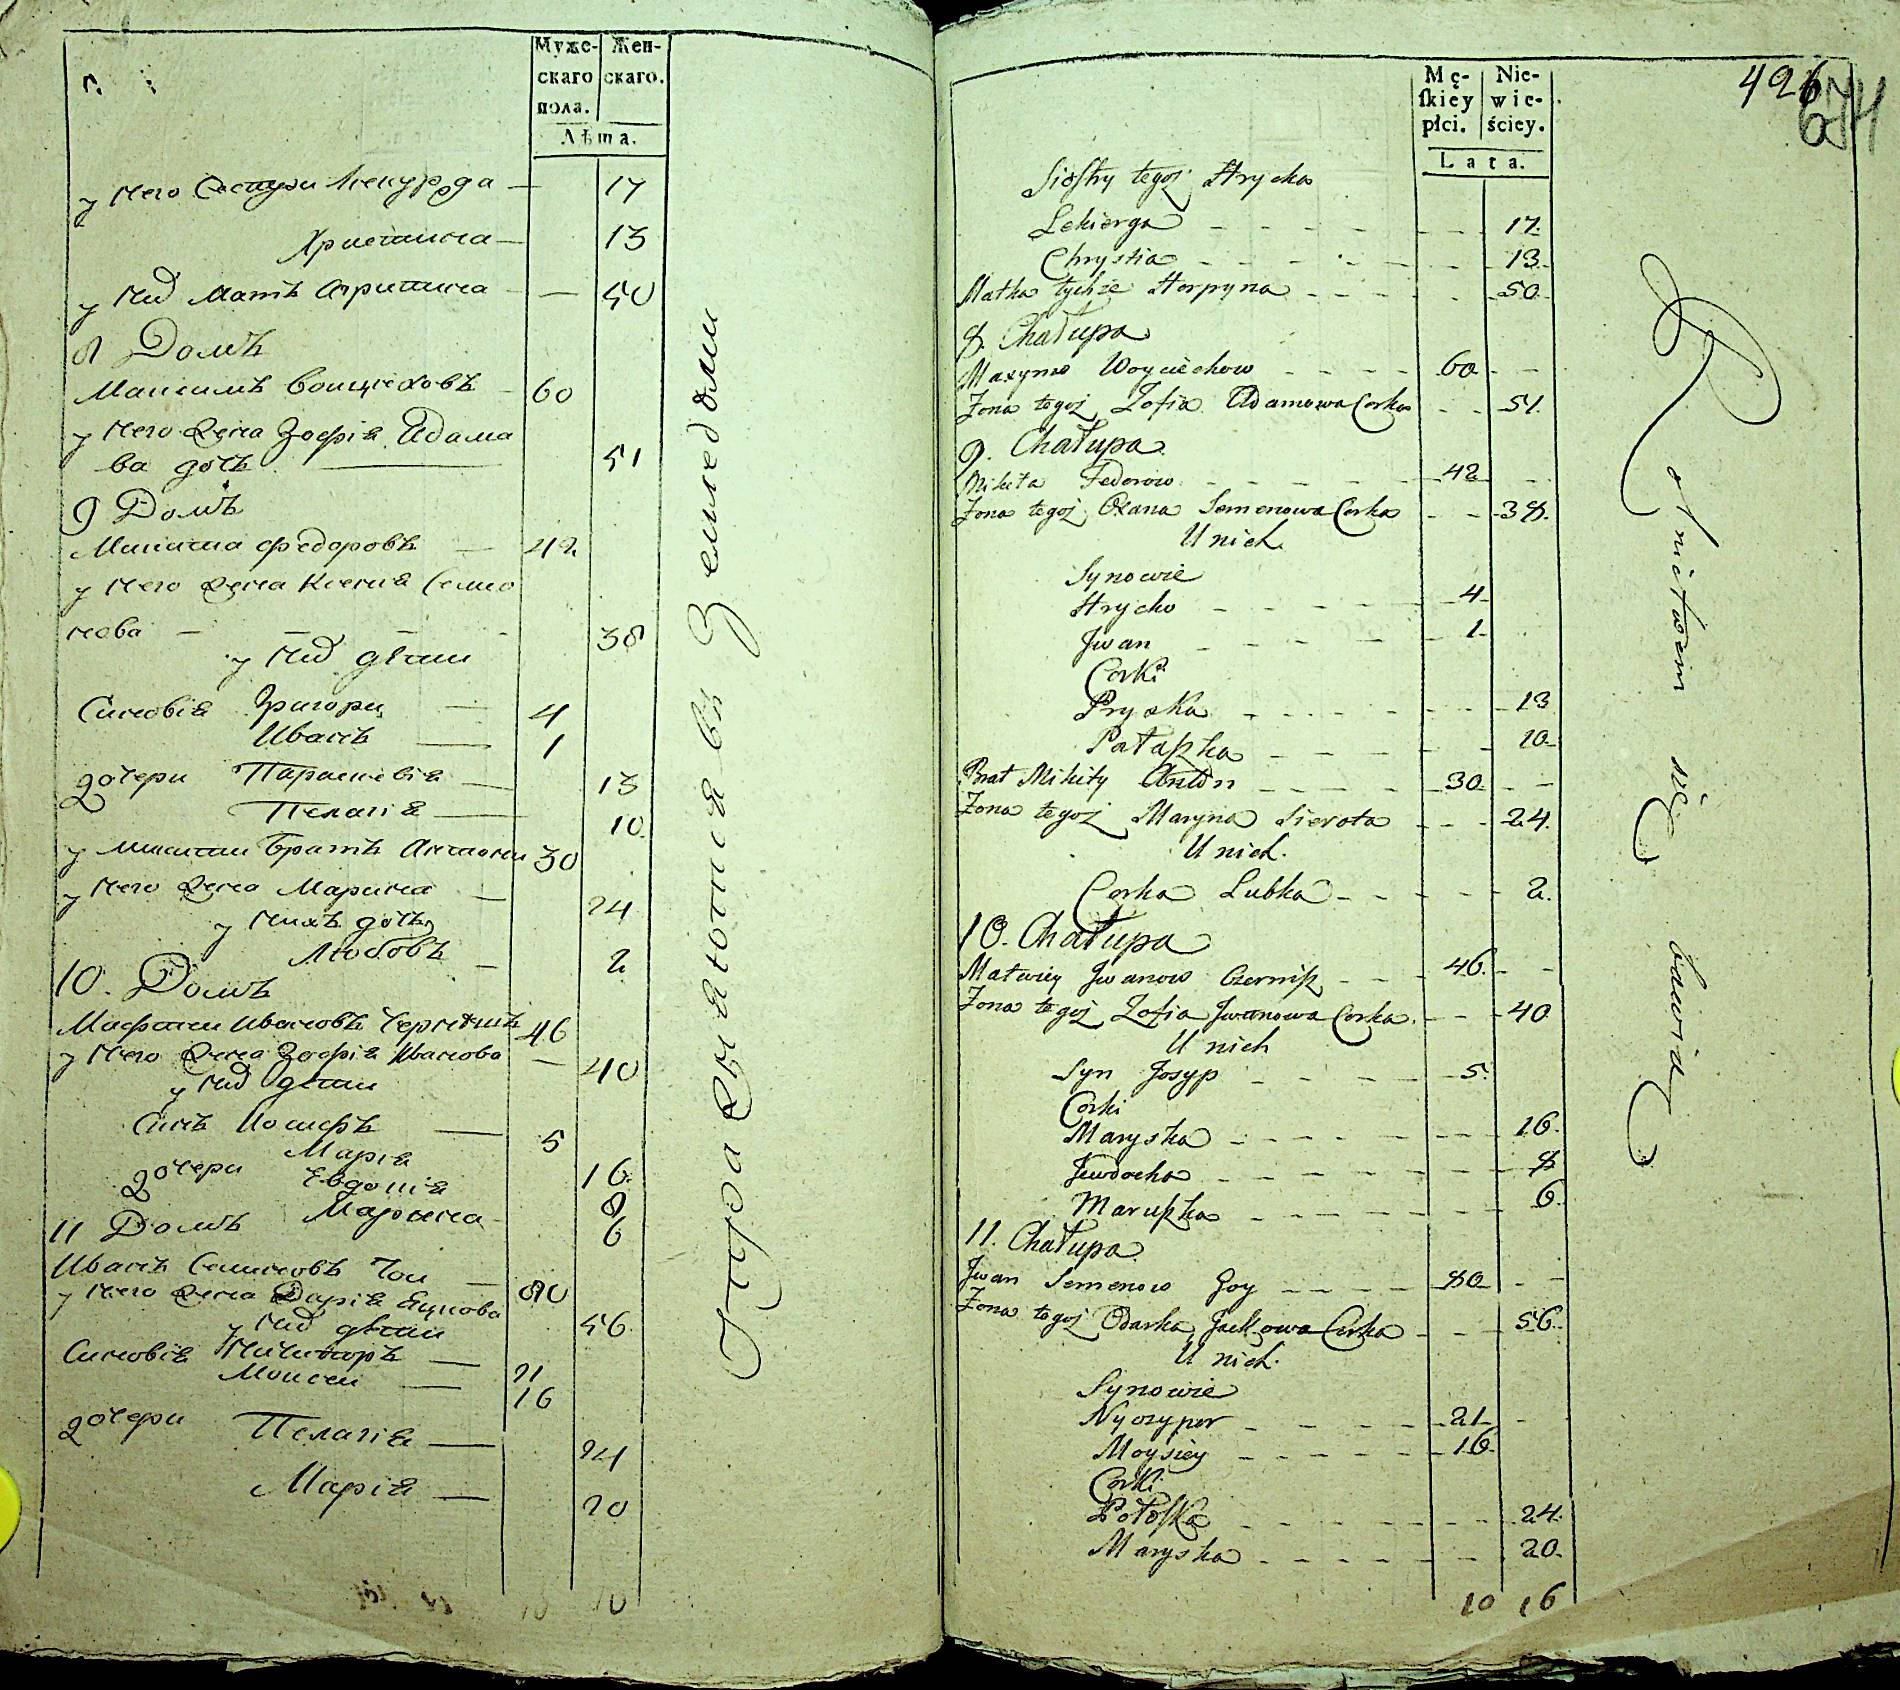 Муже-
скаго
пола.
Жен-
скаго.
Лѣта.
у него Сестри Лекурда 17
Христина 13
у нихъ Мать Агрипина 50
8 Домъ
Максимъ Войцеховъ 60
у него Жена Зофія Адамо
ва дочь 51
9 Домъ
Микита Федоровъ 42
у него Жена Ксенія Семіо
нова 38
у нихъ дѣти
Синовія Григори 4
Иванъ 1
дочери Параскевія 13
Пелагія 10
у микити братъ Антони 30
у него Жена Марина 24
у нихъ дочь
Любовъ 2
10. Домъ
Матфей Ивановъ Чернишъ 46
у него Жена Зофія Иванова 40
у нихъ дѣти
Синъ Иосифъ 5
Марія 16
дочери Евдокія 8
Марьяна 6
11 Домъ
Иванъ Семиновъ Гой 80
у него Жена Дарія Яцкова 56
у нихъ дѣти
Синовія Ничипоръ 21
Моисей 16
дочери Пелагія 24
Марія 20
Упражняются въ Земледѣліи
Mę-
skiey
płci.
Nie-
wie-
ściey.
Lata.
426
674
Siostry tegoż Hrycka
Lekierga 17.
Chrystia 13.
Matka tychże Horpyna 50.
8. Chałupa
Maxym Woyciechow 60
Żona tegoż Zofia Adamowa Corka 51.
9. Chałupa
Mikita Fedorow 42
Żona tegoż Oxana Semenowa Corka 38.
U nich
Synowie
Hryćko 4
Jwan 1
Corki
Pryska 13
Patapka 10
Brat Mikity Anton 30
Żona tegoż Maryna Sierota 24.
U nich.
Corka Lubka 2.
10. Chałupa
Matwiey Jwanow Czernisz 46.
Żona tegoż Zofia Jwanowa Corka 40
U nich
Syn Josyp 5
Corki
Maryska 16.
Jewdocha 8
Maruszka 6.
11. Chałupa
Jwan Semenow Goy 80
Żona tegoż Odarka Jackowa Corka 56.
U nich.
Synowie
Nyczypor 21
Moysiey 16
Corki
Połoska 24.
Maryska 20.
10 16
Rolnictwem się bawią